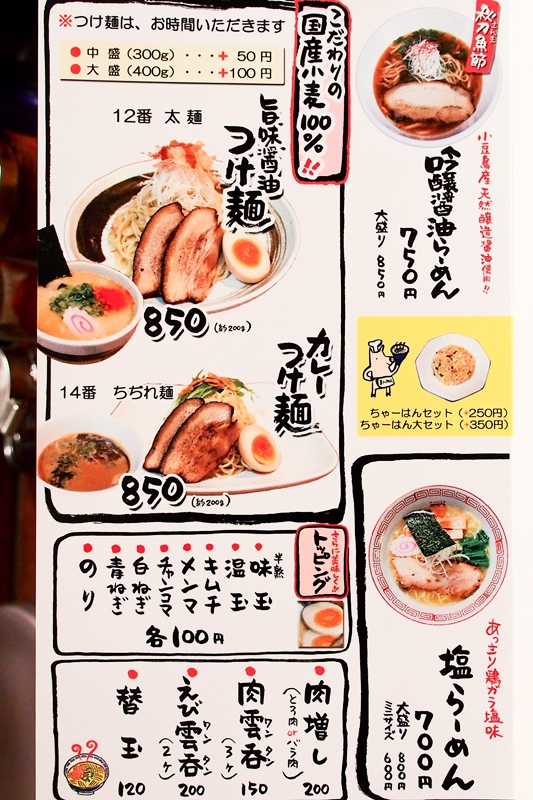 ※つけ麺は、お時間いただきます
● 中 盛（300g）・・・＋ 50 円
● 大 盛（400g）・・・＋100 円
こだわりの
国産小麦100％!!
12番 太 麺
旨味醤油
つけ麺
850（約200g）
カレー
つけ麺
14番 ちぢれ麺
850（約200g）
さらに美味しく!!
トッピング
半熟
味玉
温玉
キムチ
メンマ
チャンコマ
白ねぎ
青ねぎ
のり
各100円
肉増し
（とろ肉orバラ肉）
200
肉雲呑
ワンタン
（3ヶ）
150
えび雲呑
ワンタン
（2ヶ）
200
替玉
120
秋刀魚節
さんま
小豆島産天然醸造醤油使用!!
吟醸醤油らーめん
750円
大盛り 850円
ちゃーはんセット（+250円）
ちゃーはん大セット（+350円）
あっさり鶏ガラ塩味
塩らーめん
700円
大盛り 800円
ミニサイズ 600円